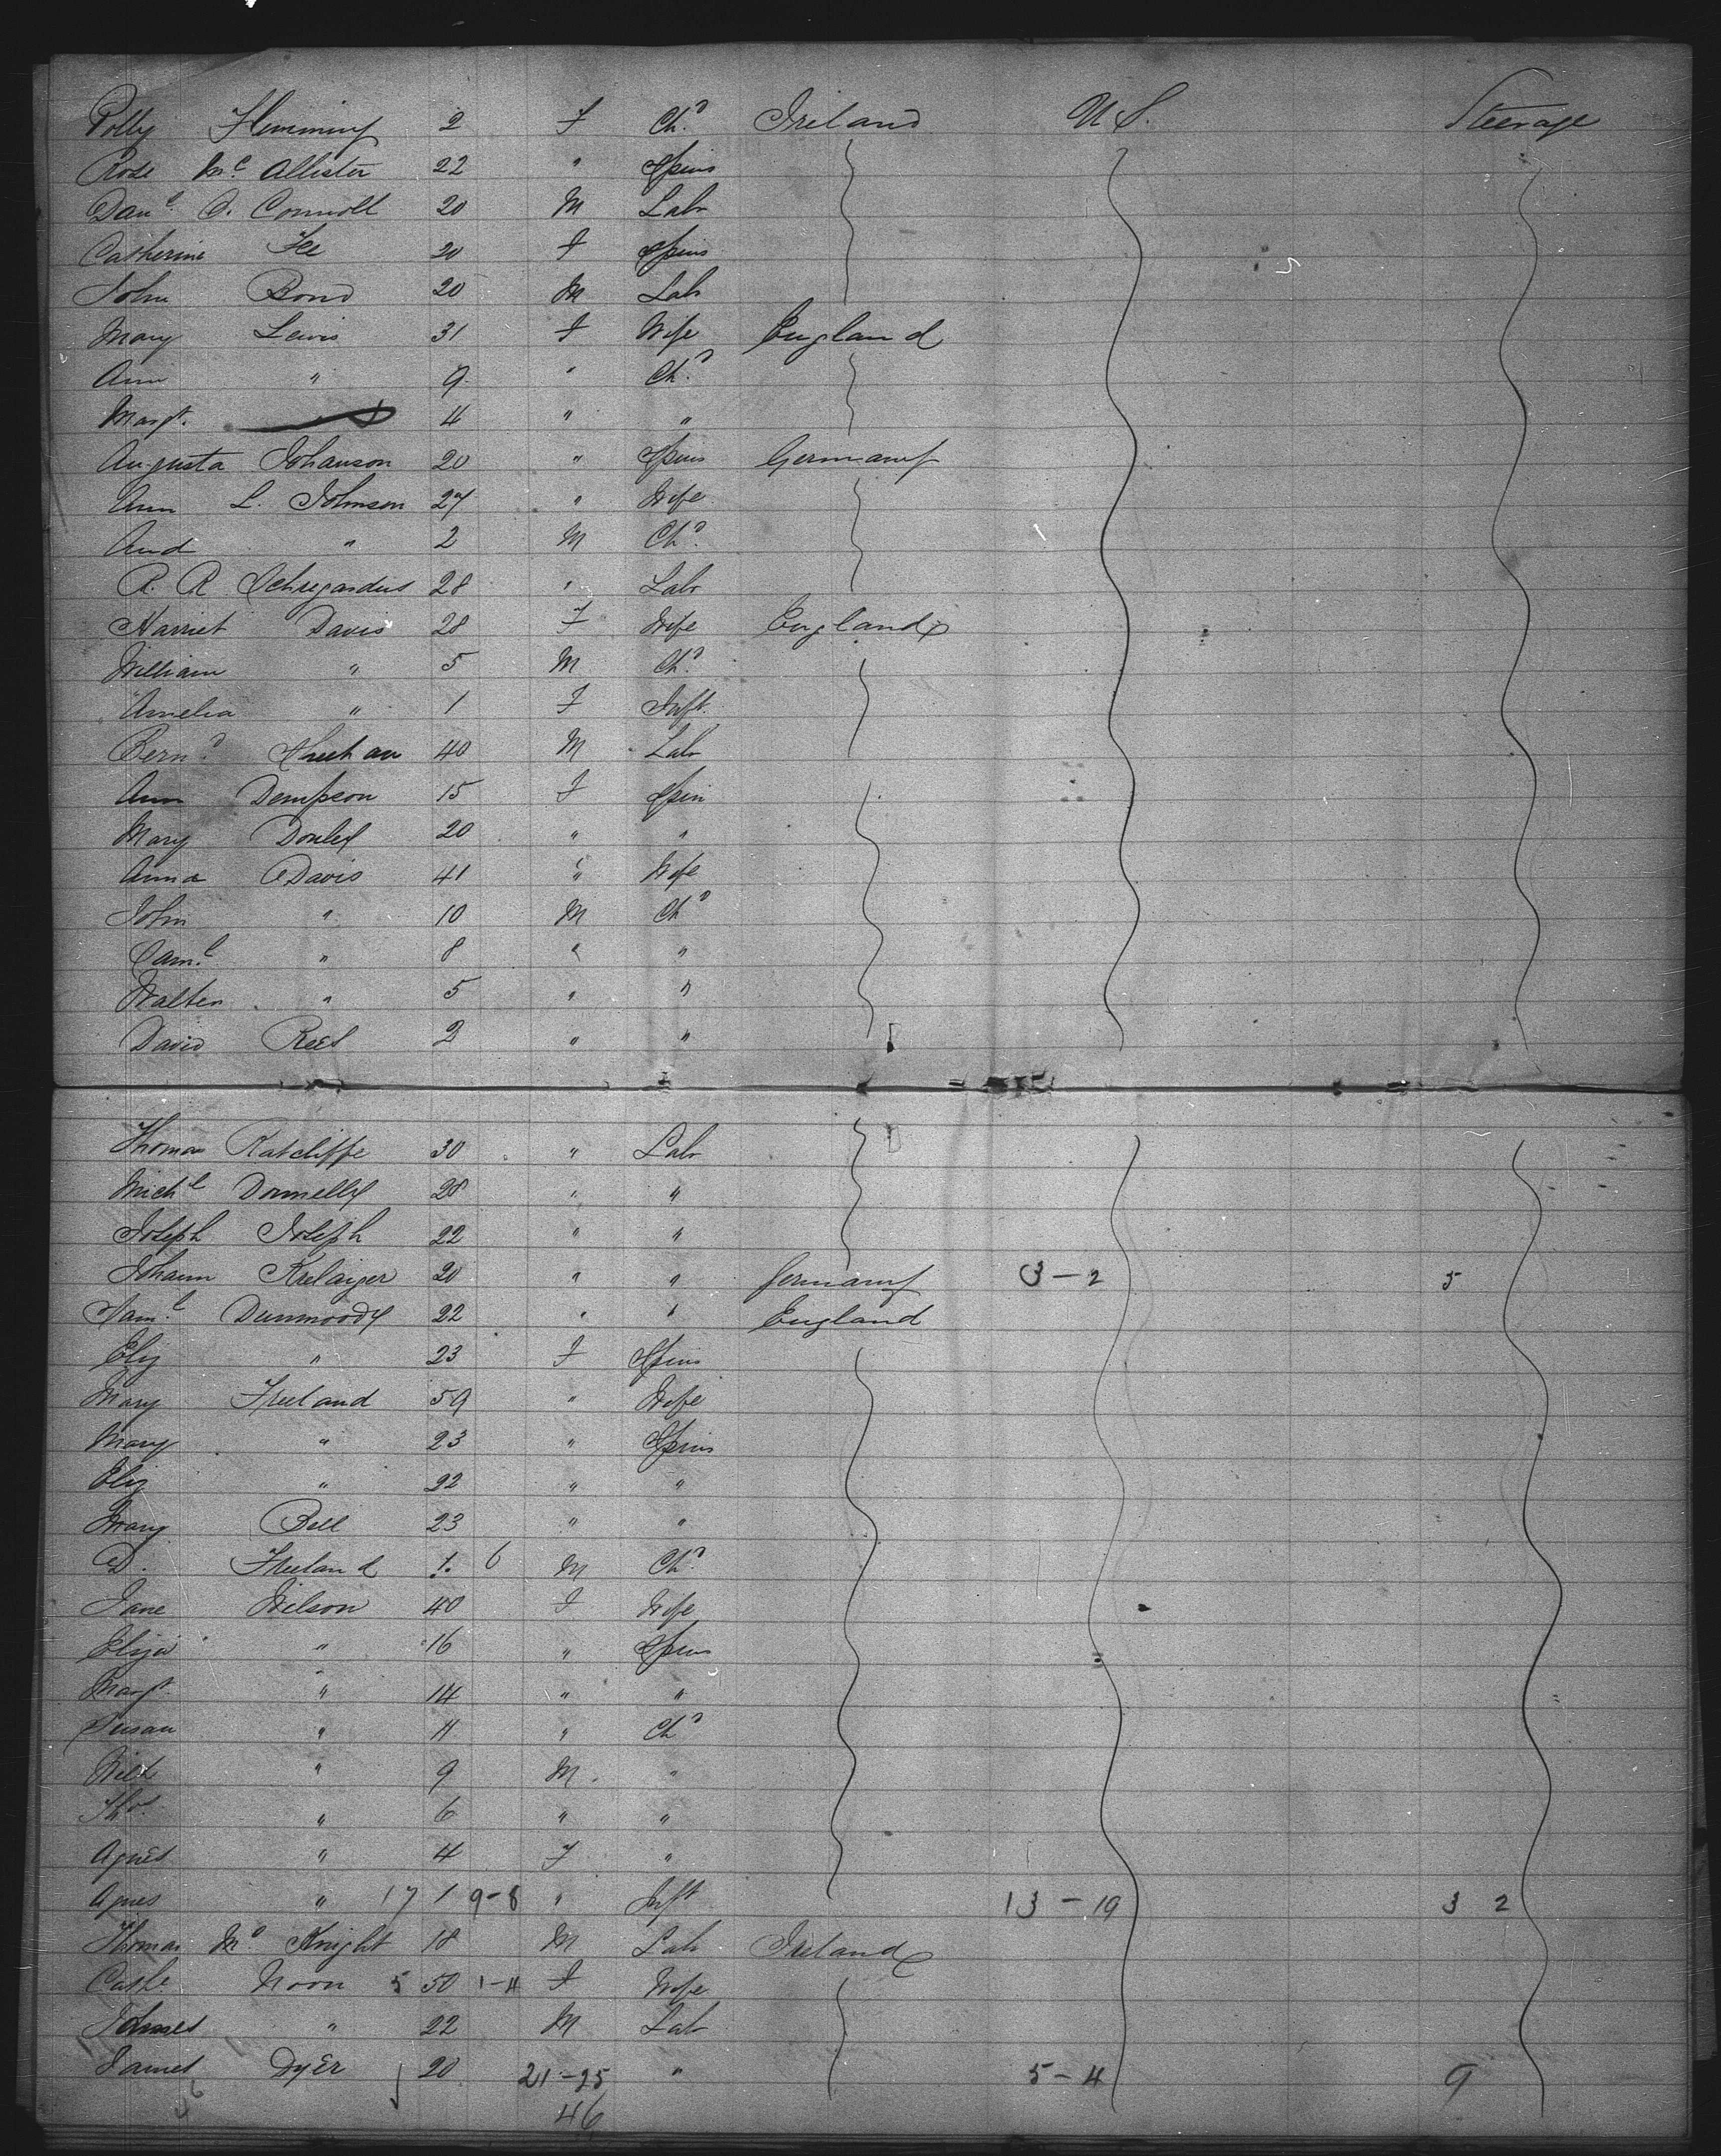 Polly Flemming 2 F Ch.d Ireland U S. Steerage
Rose Mc Allister 22 " Spins
Danl. O. Connell 20 M Lab
Catherine Fee 20 F Spins
John Bond 20 M Lab
Mary Lewis 31 F Wife England
Ann " 9 " Ch.d
Margt. 4 " "
Augusta Johanson 20 " Spins Germany
Ann L. Johnson 27 " Wife
And " 2 M Ch.d
R. R 28 " Lab
Harriet Davis 28 F Wife England
William " 5 M Ch.d
Amelia " 1 F Inft.
Bern.d Sheehan 40 M Lab
Ann Dempson 15 F Spin
Mary Donley 20 " "
Anna Davis 41 " Wife
John " 10 M Ch.d
Saml. " 8 " "
Walter " 5 " "
David Rees 2 " "
Thomas Ratcliffe 30 " Lab
Michl Donnelly 28 " "
Joseph Joseph 22 " "
Johann 20 " " Germany 3-2 5
Saml. Dunwoody 22 " " England
Eliz " 23 F Spins
Mary Freeland 59 " Wife
Mary " 23 " Spins
Eliz " 22 " "
Mary Bell 23 " "
D. Freeland 1. 6 M Ch.d
Jane Wilson 40 F Wife
Eliza " 16 " Spins
Margt " 14 " "
Susan " 11 " Ch.d
" 9 M "
Thos. " 6 " "
Agnes " 4 F "
Agnes " 17 1 9-8 " Inft 13-19 3 2
Thomas Mc Knight 18 M Lab Ireland
Cath. Noon 5 50 1-4 F Wife
" 22 M Lab
James Dyer 20 21-25 " 5-4 9
46